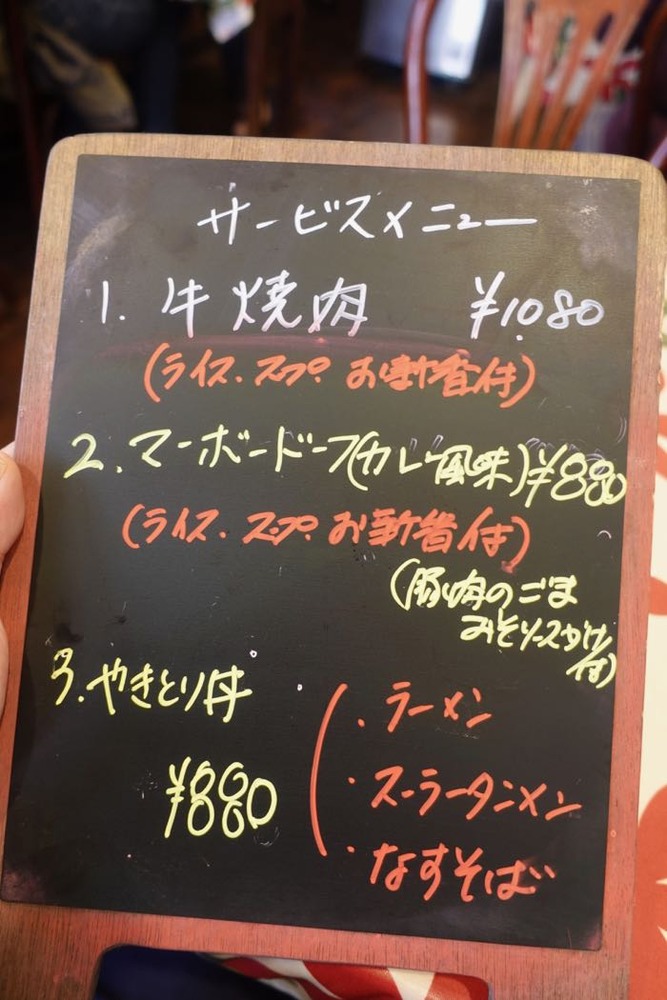 サービスメニュー
1. 牛焼肉 ¥1080
(ライス.スープ.お新香付)
2.マーボードーフ(カレー風味)¥880
(ライス.スープ.お新香付)
(豚肉のごま
みそソースかけ
付)
3.やきとり丼
¥880
・ラーメン
・スーラータンメン
・なすそば